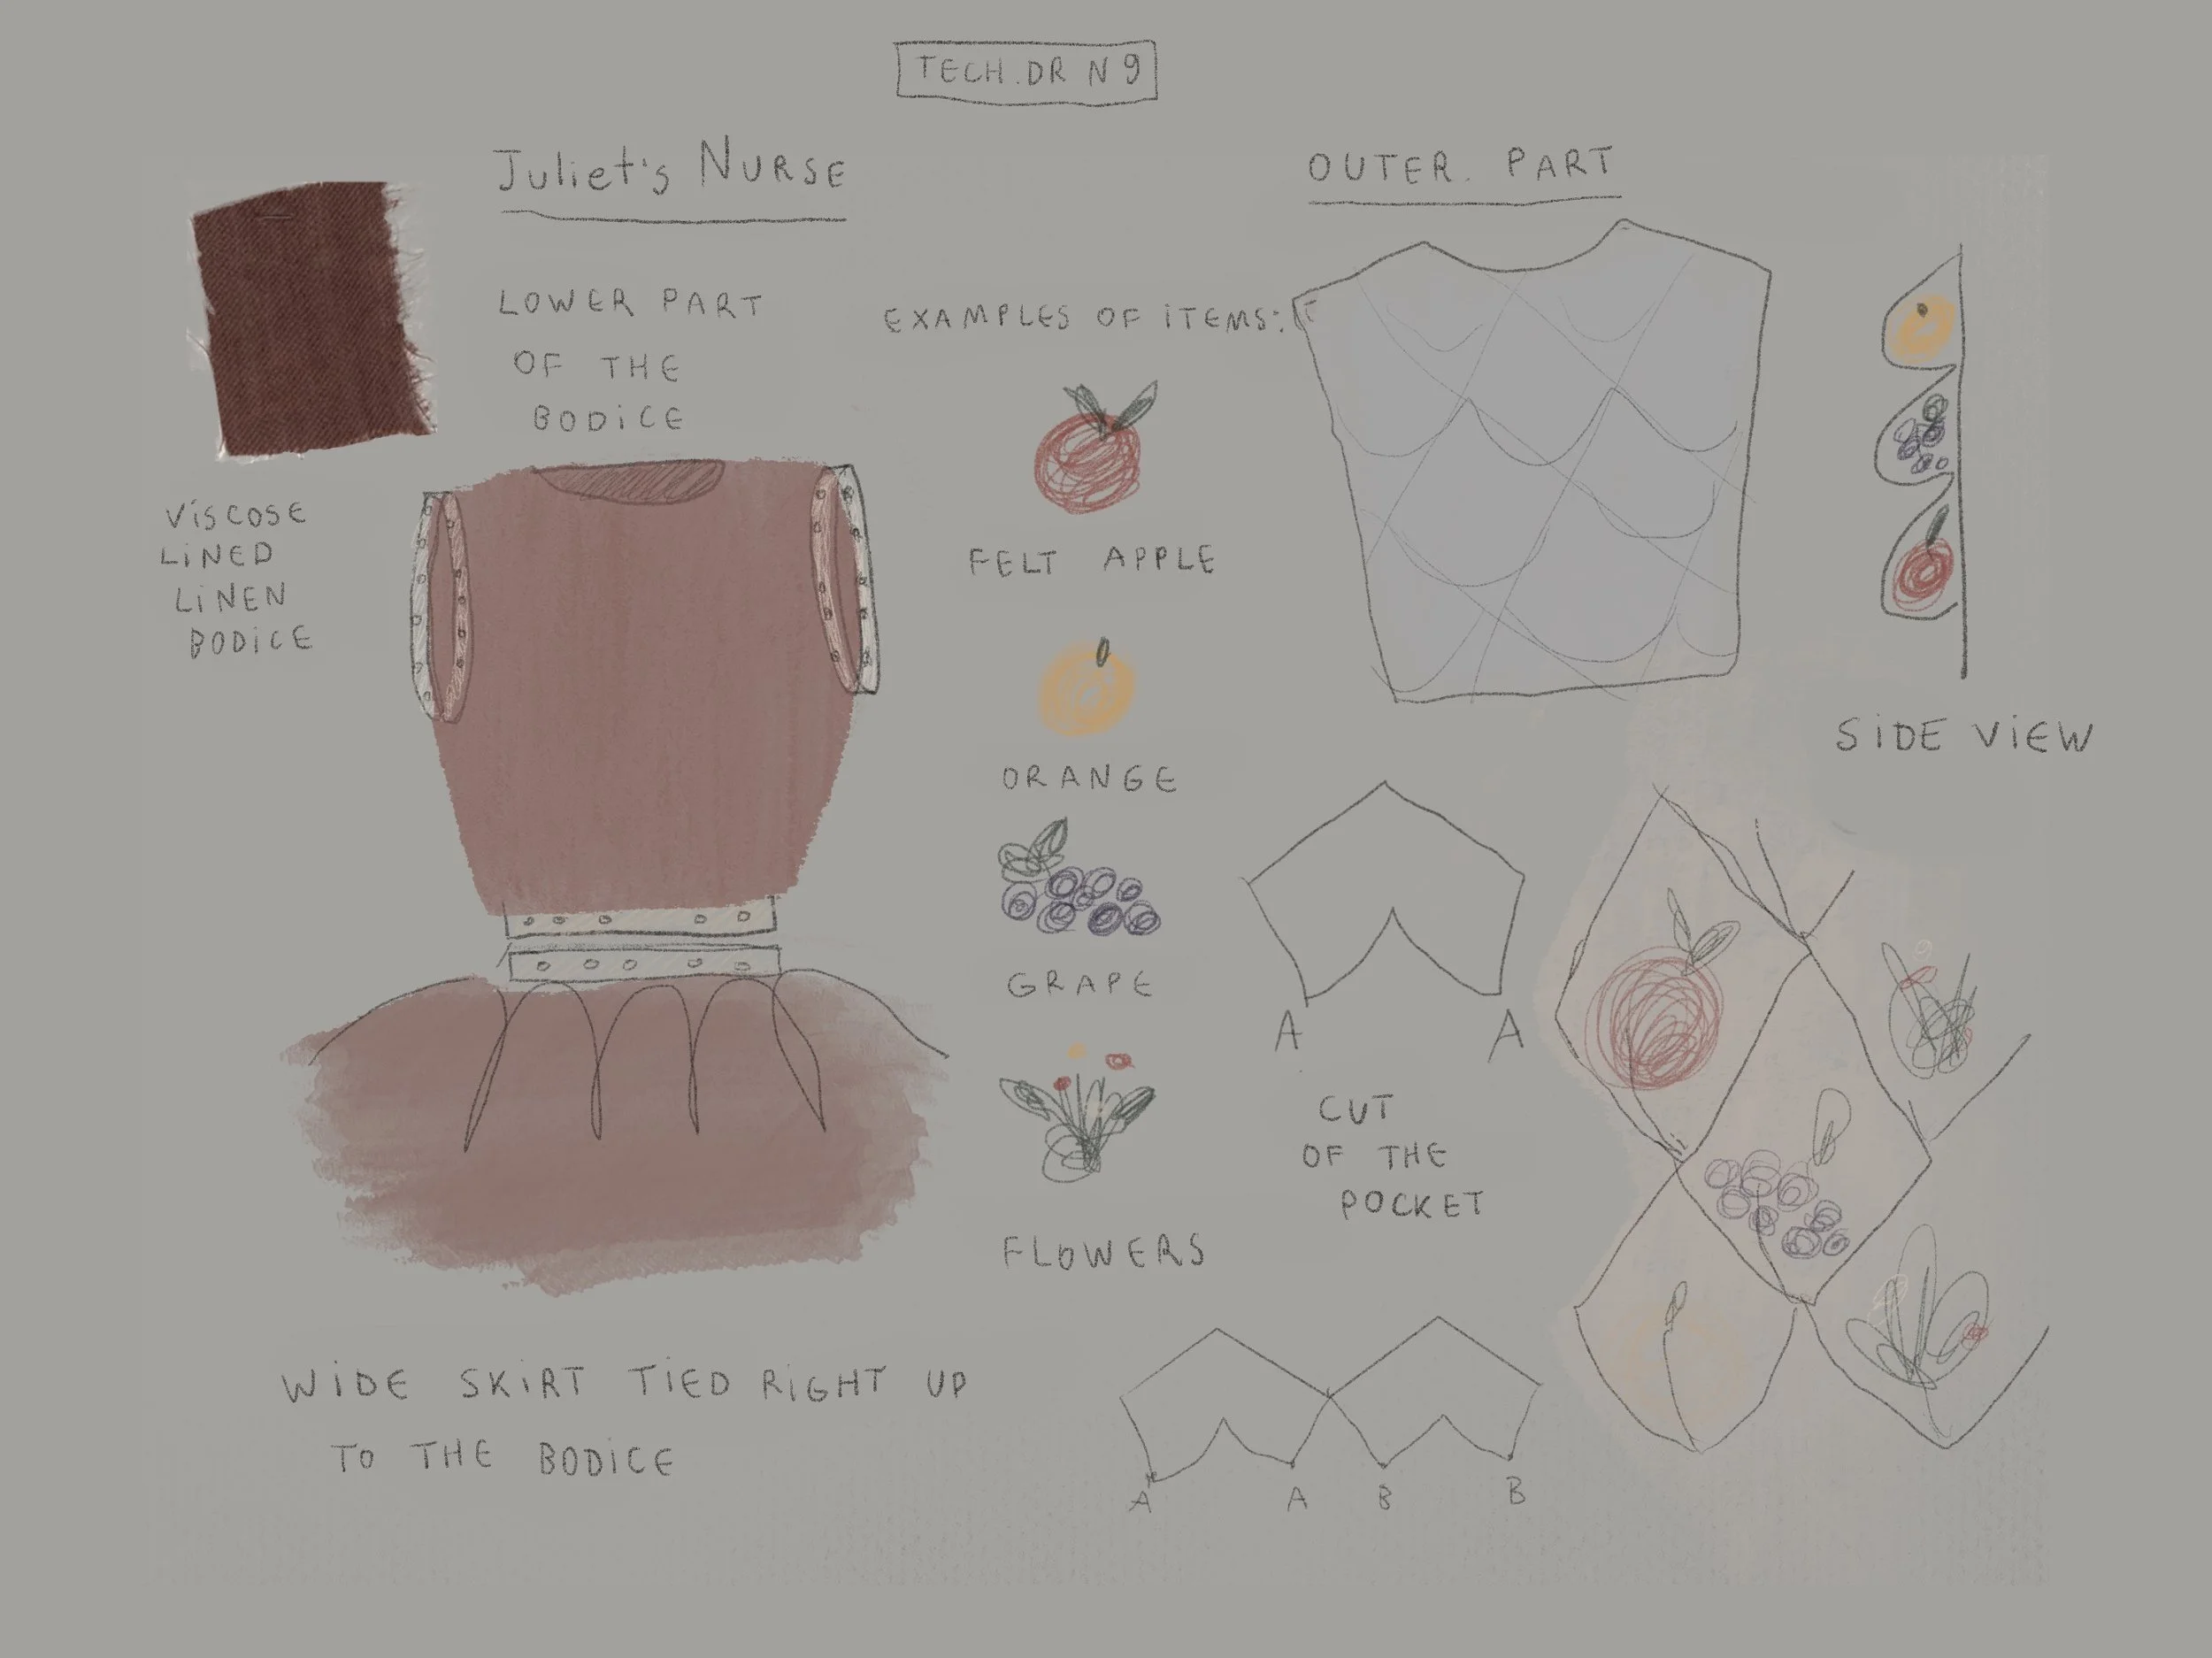 TECH.DR N 9
Juliet's NURSE
LOWER PART
OF THE
BODICE
VISCOSE
LINED
LINEN
BODICE
WIDE SKIRT TIED RIGHT UP
TO THE BODICE
EXAMPLES OF ITEMS:
FELT APPLE
ORANGE
GRAPE
FLOWERS
OUTER. PART
SIDE VIEW
A A
CUT
OF THE
POCKET
A A B B